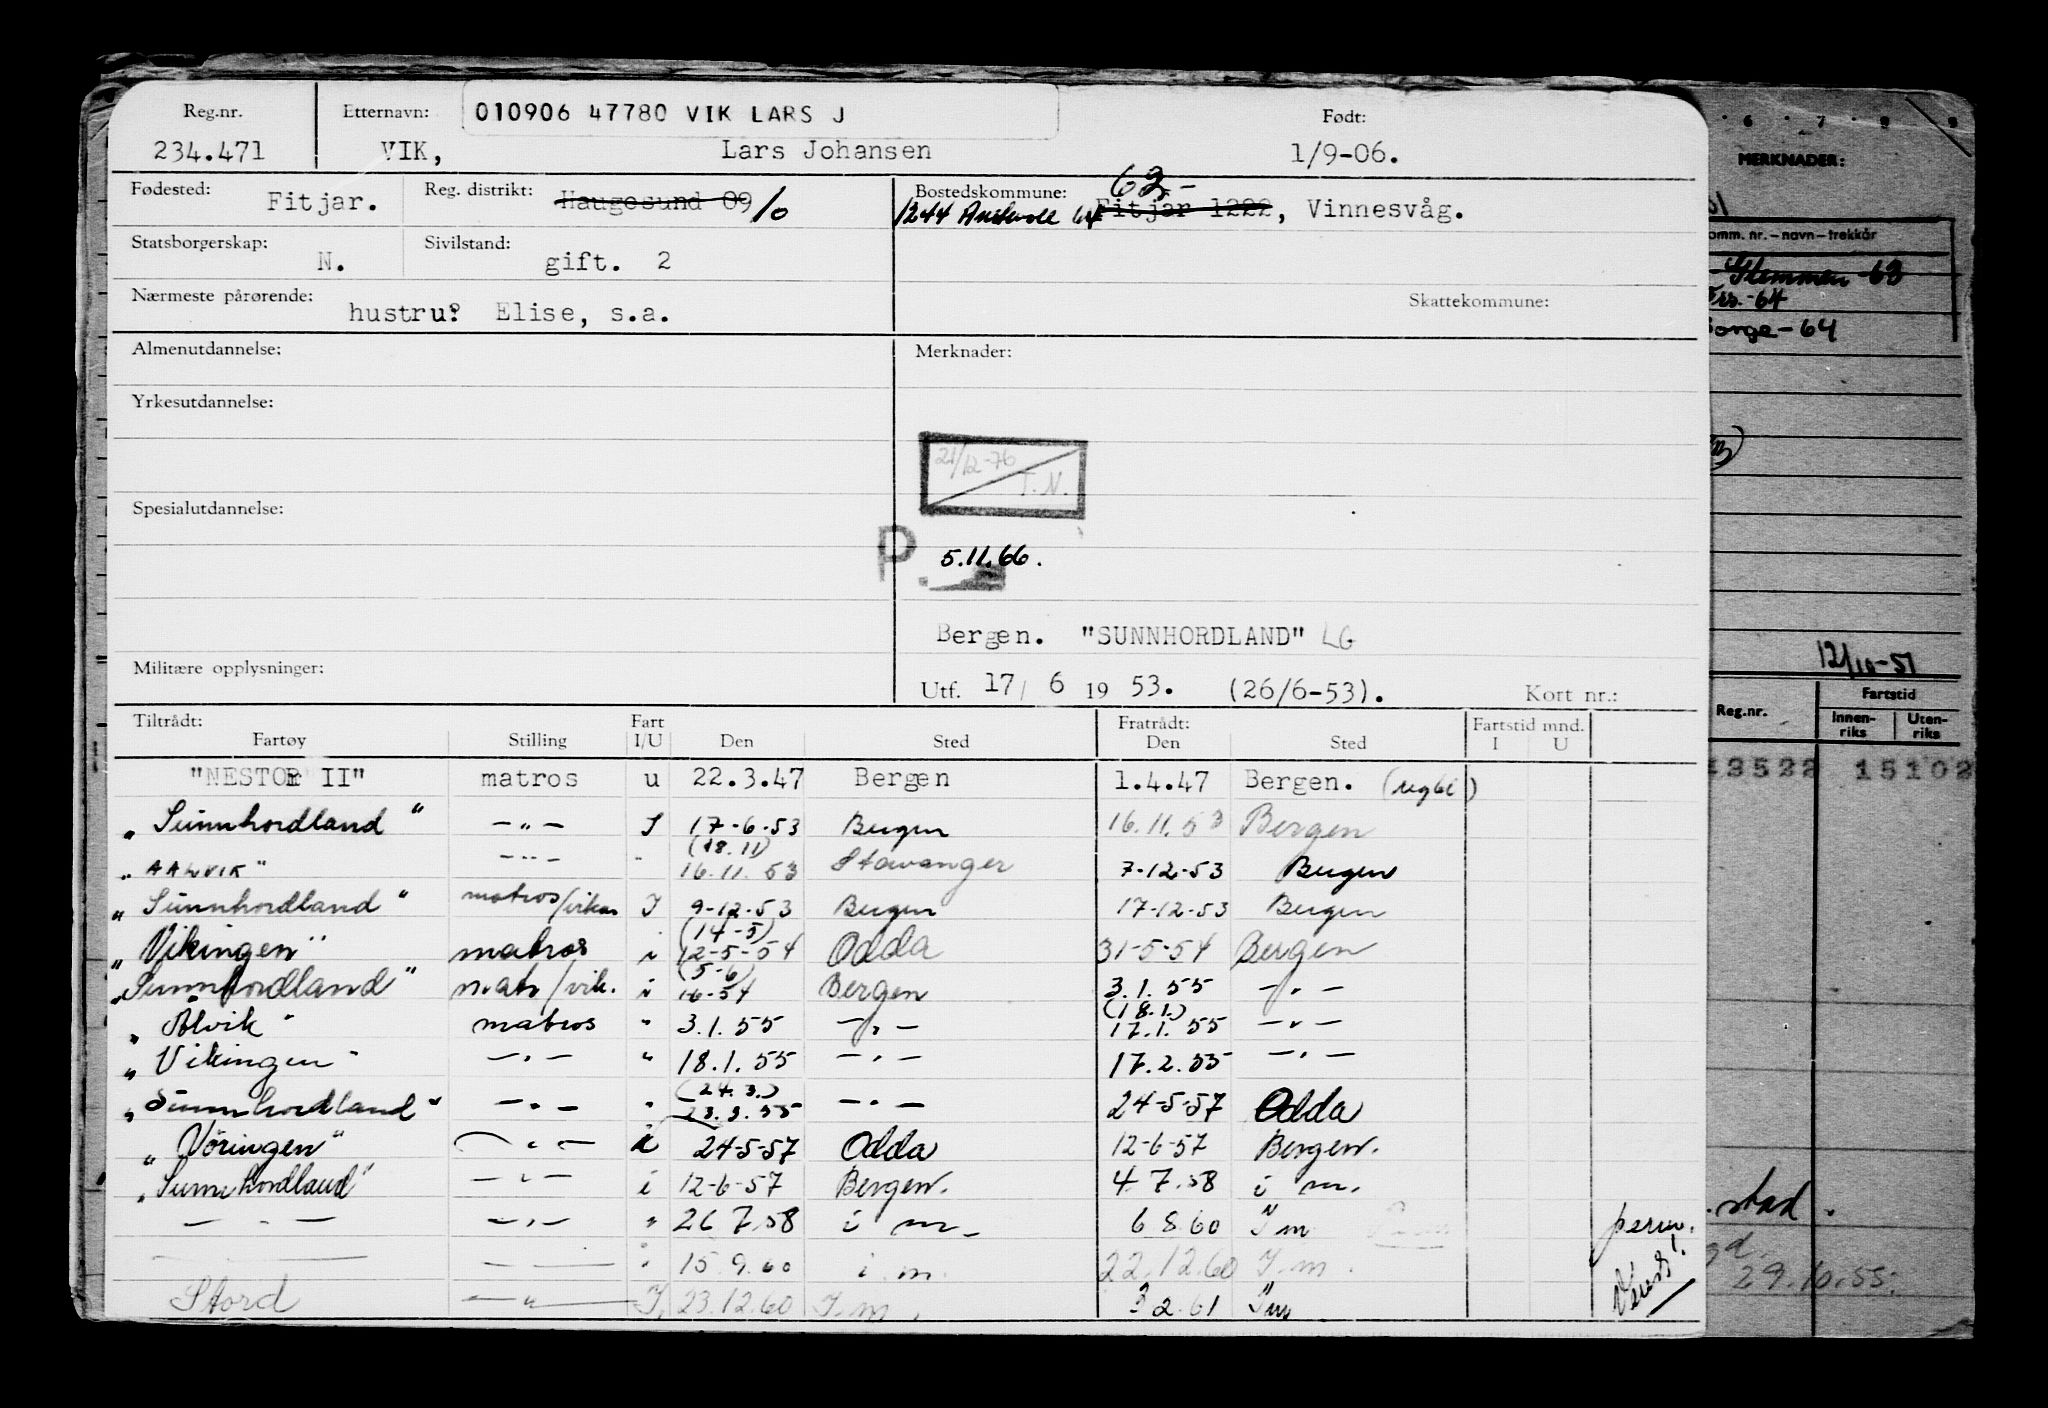 Reg.nr. Etternavn: 010906 47780 VIK LARS J Født:
234.471 VIK, Lars Johansen 1/9-06.
Fødested: Fitjar. Reg. distrikt: Haugesund 09 10 Bostedskommune: 63- Fitjar 1222, Vinnesvåg.
1244 Austevoll 64
Statsborgerskap: N. Sivilstand: gift. 2
Nærmeste pårørende: hustru: Elise, s.a. Skattekommune:
Almenutdannelse: Merknader:
Yrkesutdannelse:
21/12-76 T.N.
Spesialutdannelse:
P. 5.11.66.
Bergen. "SUNNHORDLAND" LG
Militære opplysninger:
Utf. 17/ 6 19 53. (26/6-53). Kort nr.:
Tiltrådt: Fart Fratrådt: Fartstid mnd.
Fartøy Stilling I/U Den Sted Den Sted I U
"NESTOR II" matros u 22.3.47 Bergen 1.4.47 Bergen. (regbl)
"Sunnhordland" -"- I 17-6-53 Bergen 16.11.53 Bergen
"AALVIK" -"- " (18.11) 16.11.53 Stavanger 7-12-53 Bergen
"Sunnhordland" matros/vikar I 9-12-53 Bergen 17-12-53 Bergen
"Vikingen" matros i (14-5) 12-5-54 Odda 31-5-54 Bergen
"Sunnhordland" matr/vik. i (5-6) 1-6-54 Bergen 3.1.55 -"-
"Ålvik" matros " 3.1.55 -"- (18.1.) 17.1.55 -"-
"Vikingen" -"- " 18.1.55 -"- 17.2.55 -"-
"Sunnhordland" -"- " (24.3.) 23.3.55 -"- 24-5-57 Odda
"Vöringen" -"- i 24-5-57 Odda 12-6-57 Bergen.
"Sunnhordland" -"- i 12-6-57 Bergen. 4.7.58 i m.
-"- -"- " 26.7.58 i m. 6.8.60 I m perm.
" 15.9.60 i.m. 22.12.60 I.m.
Stord -"- I, 23.12.60 I.m. 3.2.61 Im
6 7 8 9
MERKNADER:
omm. nr. – navn – trekkår
Stemmen -63
-64
Borge-64
12/10-51
Reg.nr. Fartstid
Innen-riks Uten-riks
43522 15102
stad.
29.10.55.